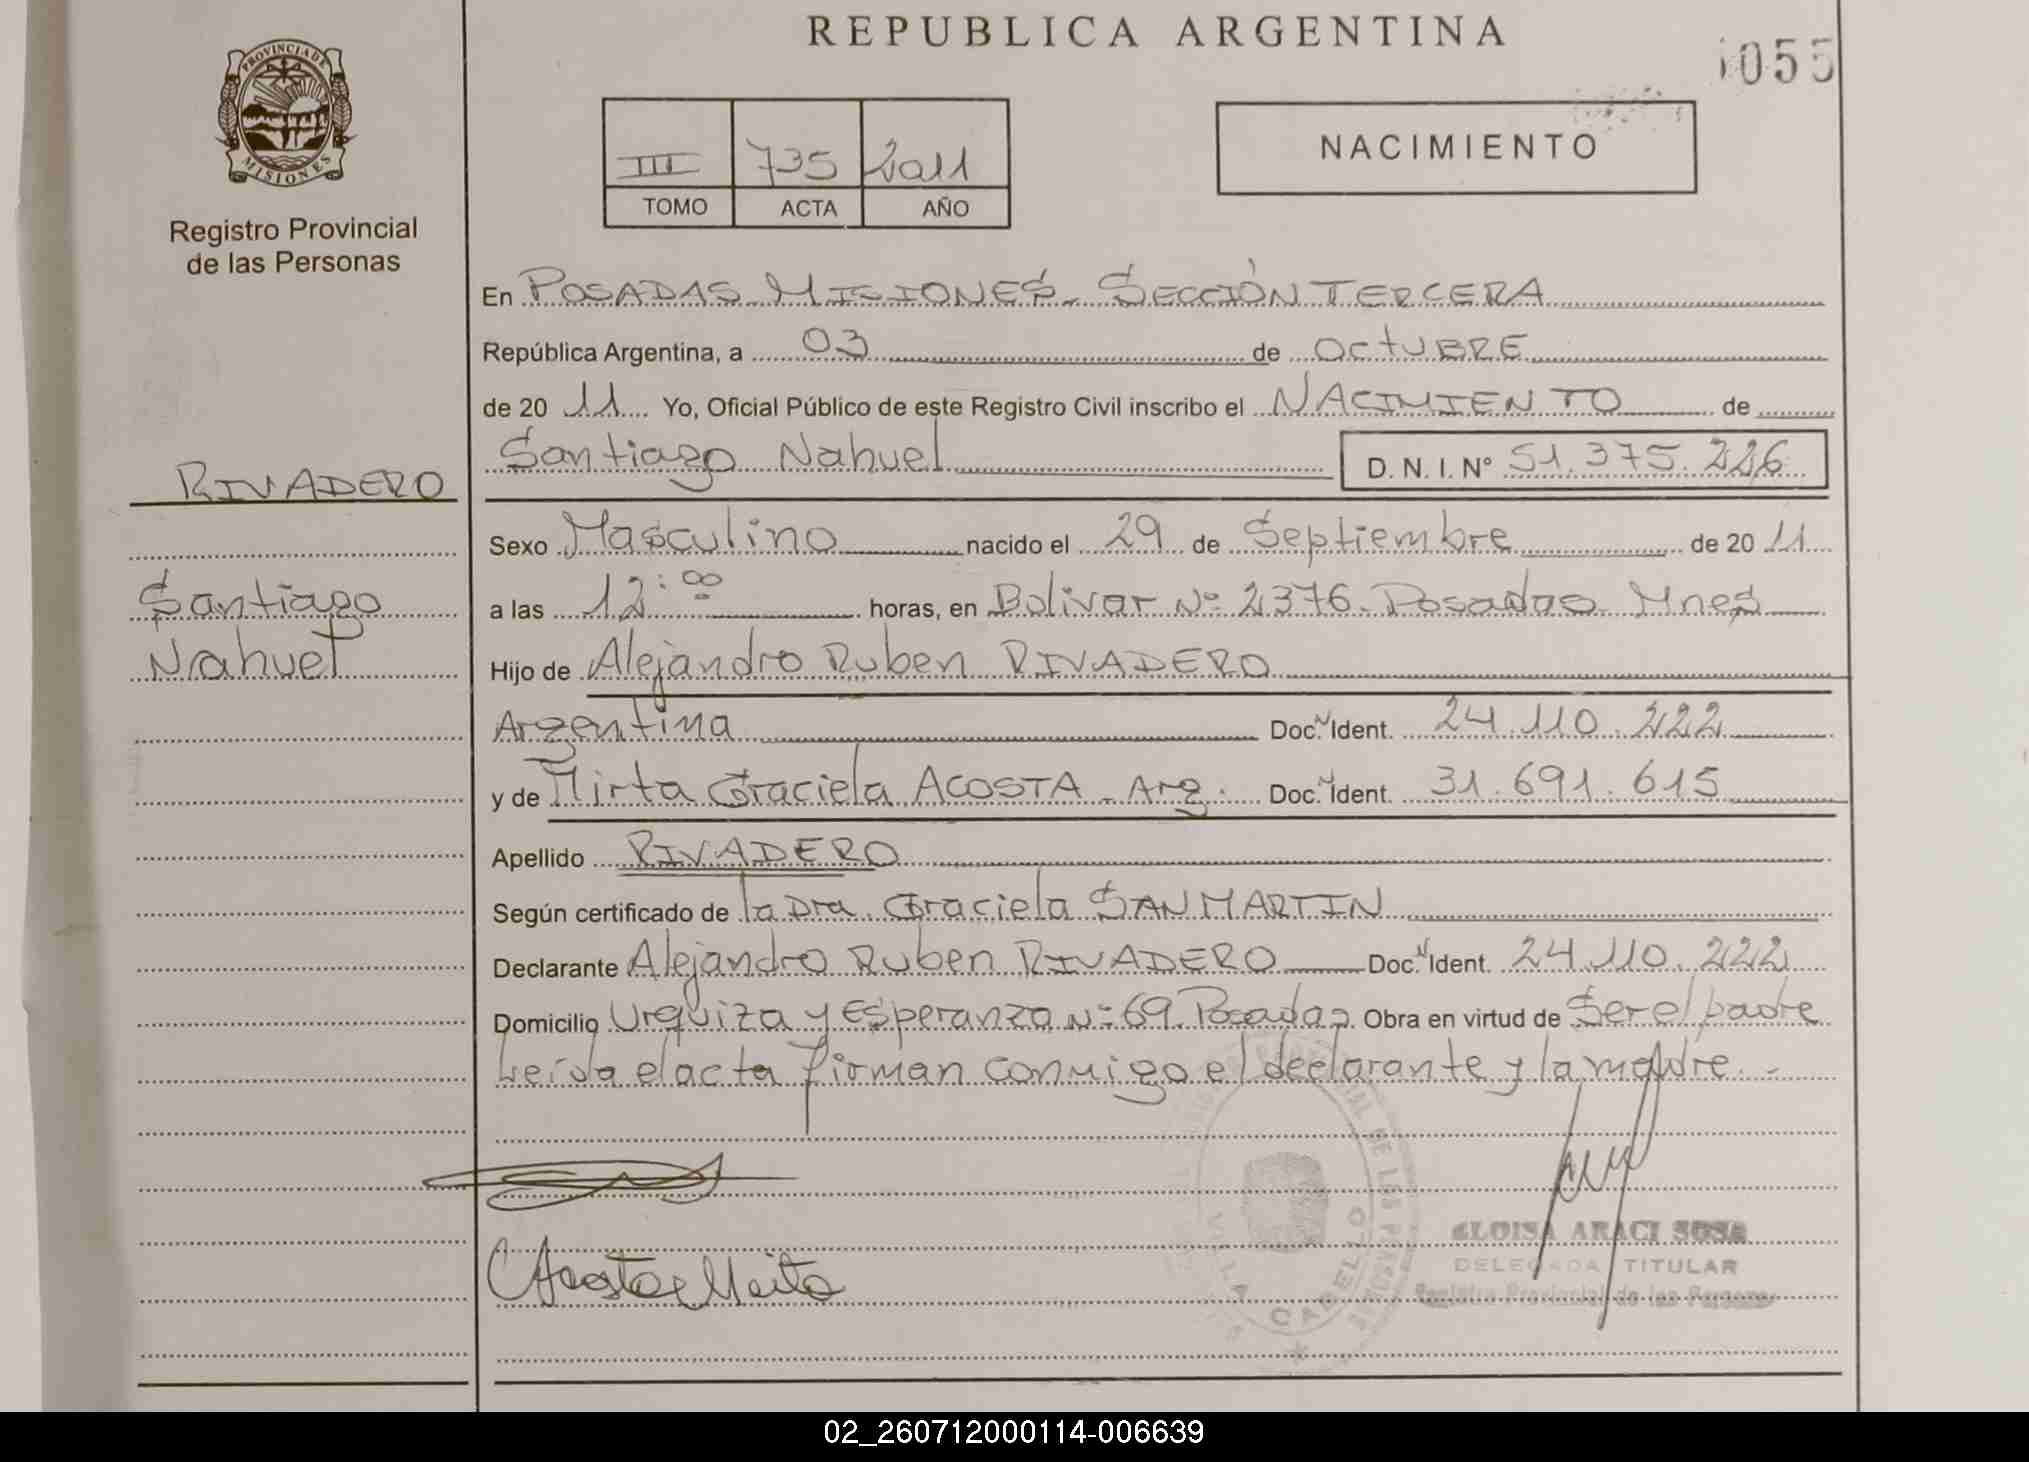 REPUBLICA ARGENTINA
1055
PROVINCIA DE MISIONES
Registro Provincial
de las Personas
III 735 2011
TOMO ACTA AÑO
NACIMIENTO
En POSADAS MISIONES. SECCIÓN TERCERA
República Argentina, a 03 de OCTUBRE
de 20 11 Yo, Oficial Público de este Registro Civil inscribo el NACIMIENTO de
Santiago Nahuel D. N. I. N° 51.375.226
RIVADERO
Santiago
Nahuel
Sexo Masculino nacido el 29 de Septiembre de 20 11
a las 12:00 horas, en Bolivar Nº 2376. Posadas Mnes
Hijo de Alejandro Ruben RIVADERO
Argentina Doc. Ident. 24.110.222
y de Mirta Graciela ACOSTA - Arg. Doc. Ident. 31.691.615
Apellido RIVADERO
Según certificado de la Dra Graciela SANMARTIN
Declarante Alejandro Ruben RIVADERO Doc. Ident. 24.110.222
Domicilio Urquiza y Esperanza Nº 69. Posadas Obra en virtud de Ser el padre
Leída el acta firman conmigo el declarante y la madre. -
Acosta Mirta
ELOISA ARACI SOSA
DELEGADA TITULAR
Registro Provincial de las Personas
VILLA CABELLO
02_260712000114-006639